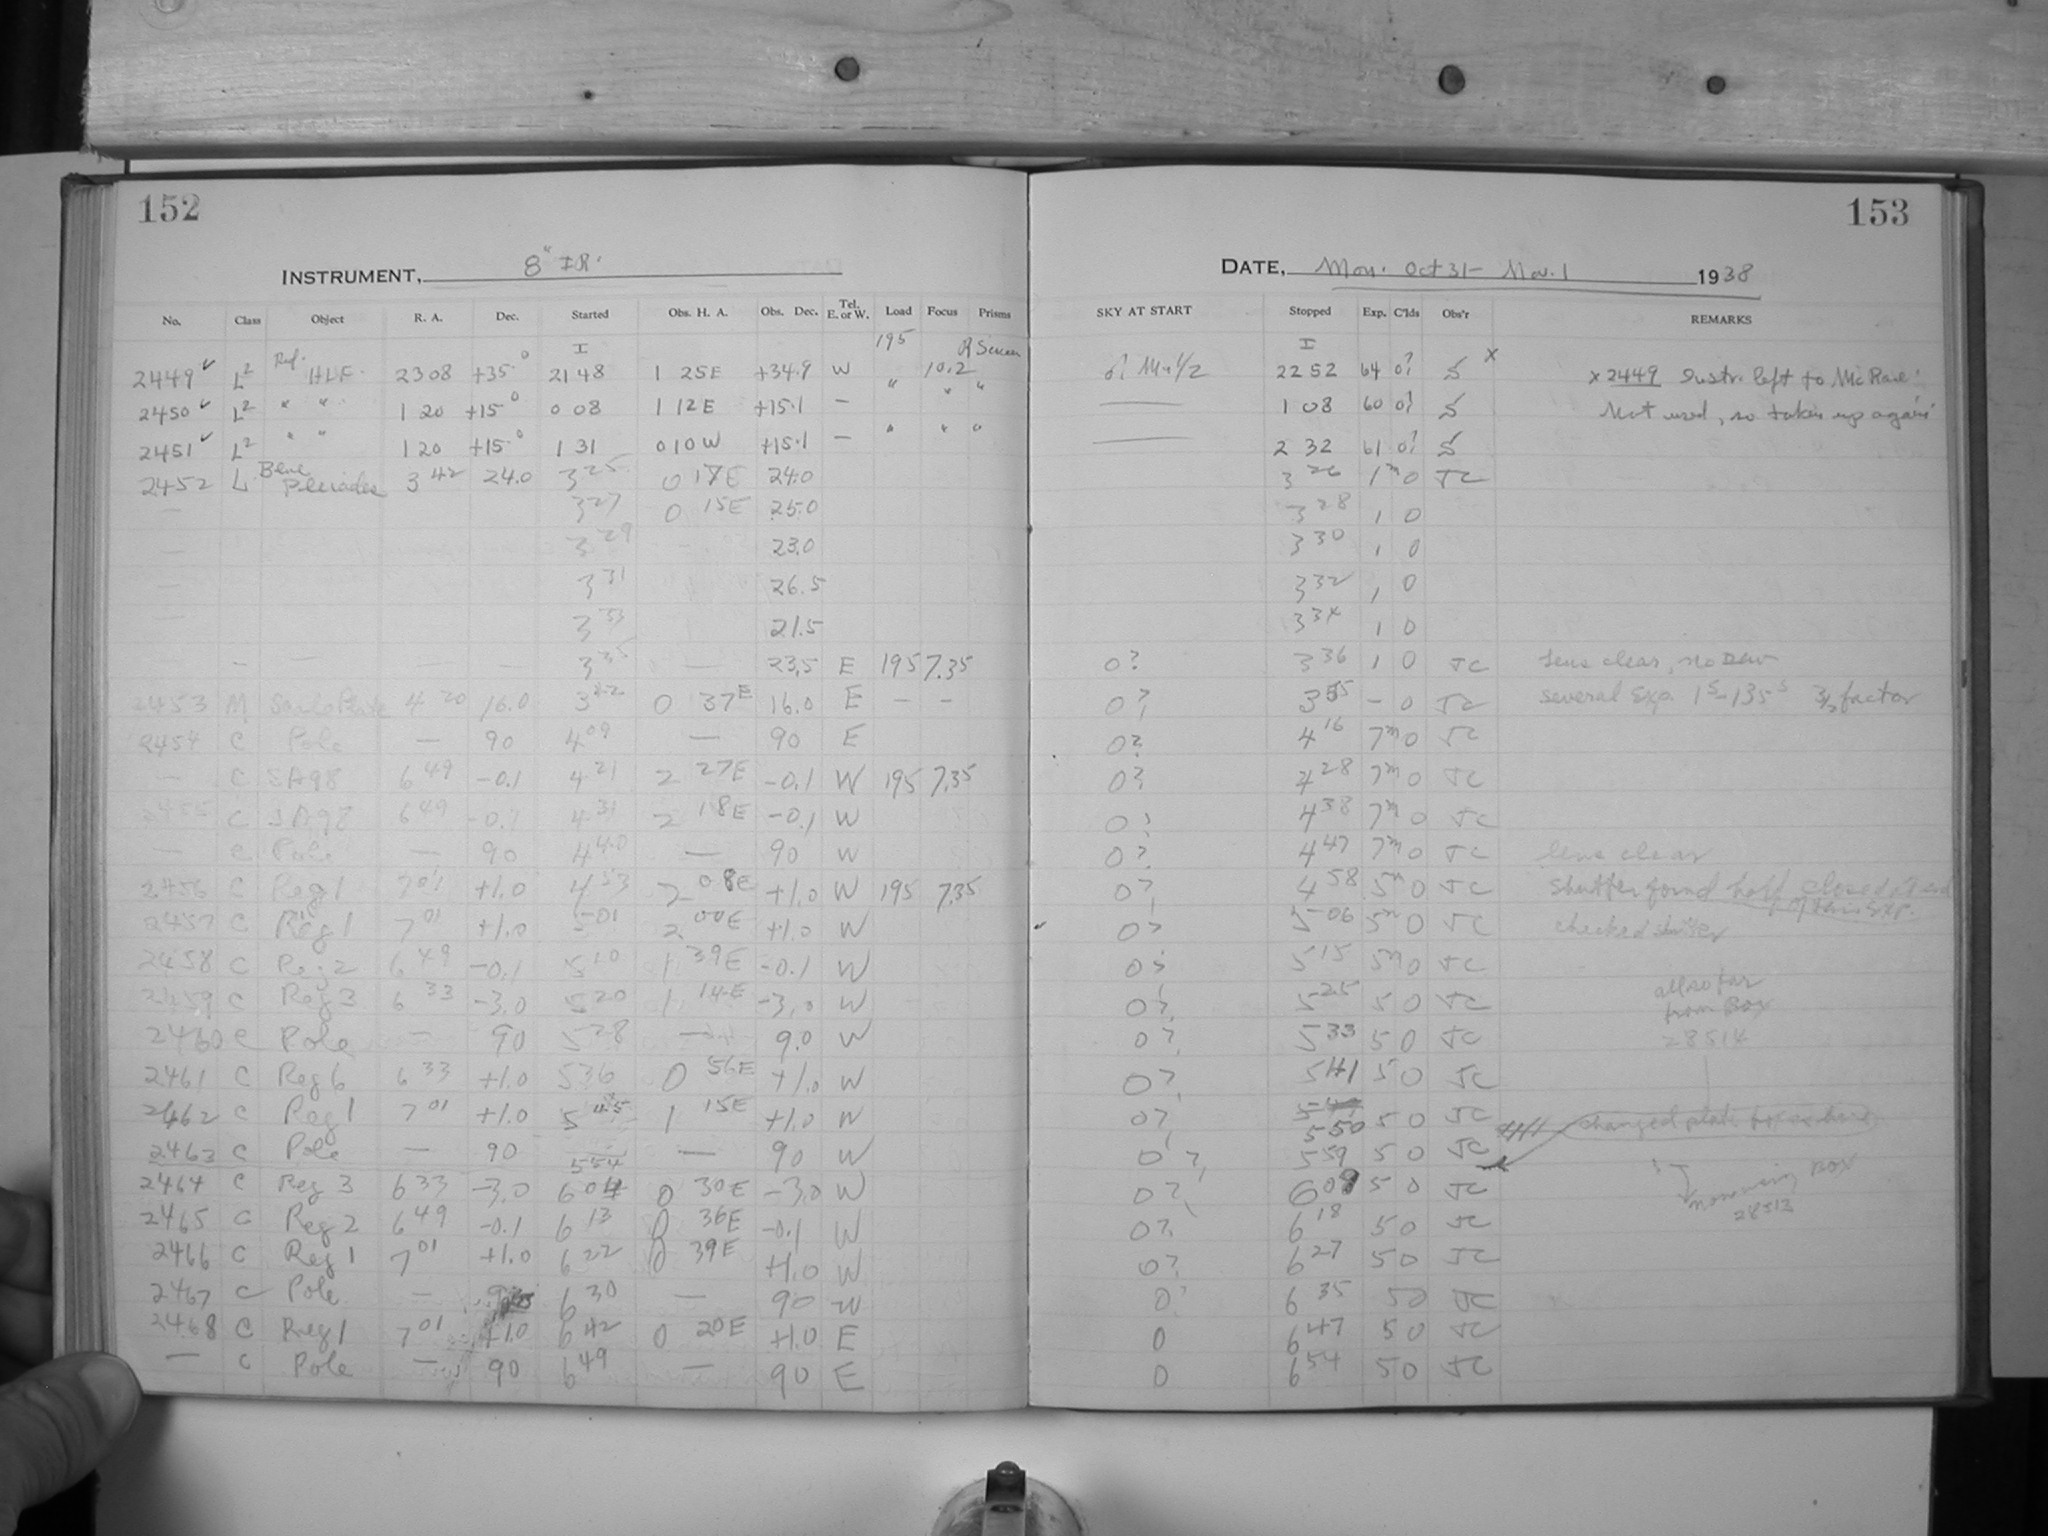 152
153
INSTRUMENT, 8" IR.
DATE, Mon. Oct 31 - Nov. 1 1938
No. Class Object R. A. Dec. Started Obs. H. A. Obs. Dec. Tel. E. or W. Load Focus Prisms SKY AT START Stopped Exp. C'lds Obs'r REMARKS
I 195 R Screen I
2449 ✓ L² Ref. 23 08 +35.0 21 48 1 25 E +34.9 W 10.2 1/2 22 52 64 0? S x x 2449 Instr. left to McRae.
2450 ✓ L² " " 1 20 +15.0 0 08 1 12 E +15.1 — " " " — 1 08 60 0? S Not used, so taken up again
2451 ✓ L² " " 1 20 +15.0 1 31 0 10 W +15.1 — " " " — 2 32 61 0? S
2452 L Pleiades 3 42 24.0 3 25 0 17 E 24.0 3 26 1m 0 JC
— 3 27 0 15 E 25.0 3 28 1 0
— 3 29 23.0 3 30 1 0
— 3 31 26.5 3 32 1 0
— 3 33 21.5 3 34 1 0
— — — — — 3 35 — 23.5 E 195 7.35 0? 3 36 1 0 JC Lens clear, no Dew
2453 M Scale Plate 4 20 16.0 0 37 E 16.0 E — — 0? — 0 JC several Exp. 1s - 135s factor
2454 C Pole — 90 4 09 — 90 E 0? 4 16 7m 0 JC
— C SA98 6 49 -0.1 4 21 2 27 E -0.1 W 195 7.35 0? 4 28 7m 0 JC
2455 C SA98 6 49 -0.1 4 31 2 18 E -0.1 W 0? 4 38 7m 0 JC
— C Pole — 90 4 40 — 90 W 0? 4 47 7m 0 JC lens clear
2456 C Reg 1 7 01 +1.0 4 53 2 08 E +1.0 W 195 7.35 0? 4 58 5m 0 JC Shutter found half closed at end of this Exp.
2457 C Reg 1 7 01 +1.0 5 01 2 00 E +1.0 W 0? 5 06 5m 0 JC checked shutter
2458 C Reg 2 6 49 -0.1 5 10 1 39 E -0.1 W 0? 5 15 5m 0 JC
2459 C Reg 3 6 33 -3.0 5 20 1 14 E -3.0 W 0? 5 25 5 0 JC all so far from Box
2460 C Pole — 90 5 28 — 9.0 W 0? 5 33 5 0 JC 28514
2461 C Reg 6 6 33 +1.0 5 36 0 56 E +1.0 W 0? 5 41 5 0 JC
2462 C Reg 1 7 01 +1.0 5 45 1 15 E +1.0 W 0? 5 50 5 0 JC changed plate box
2463 C Pole — 90 5 54 — 90 W 0? 5 59 5 0 JC
2464 C Reg 3 6 33 -3.0 6 04 0 30 E -3.0 W 0? 6 09 5 0 JC now using Box
2465 C Reg 2 6 49 -0.1 6 13 0 36 E -0.1 W 0? 6 18 5 0 JC 28513
2466 C Reg 1 7 01 +1.0 6 22 0 39 E +1.0 W 0? 6 27 5 0 JC
2467 C Pole — 6 30 — 90 W 0? 6 35 5 0 JC
2468 C Reg 1 7 01 +1.0 6 42 0 20 E +1.0 E 0 6 47 5 0 JC
— C Pole — 90 6 49 — 90 E 0 6 54 5 0 JC